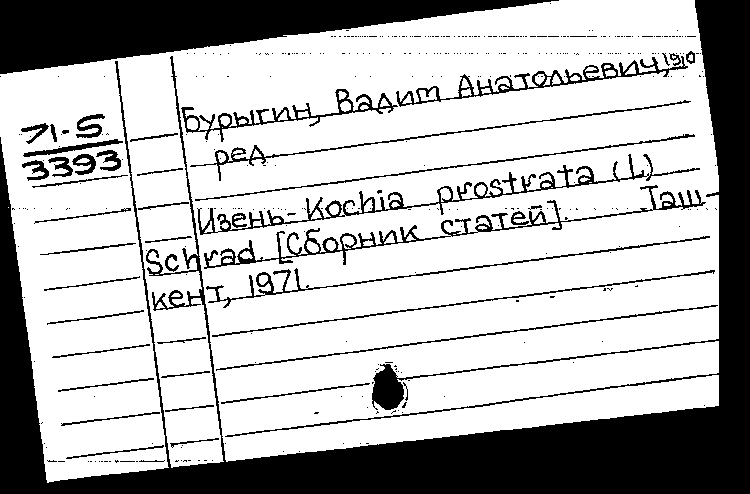 71-5
3393
Бурыгин, Вадим Анатольевич, 1910
ред.
Изень-Kochia prostrata (L)
Schrad. [Сборник статей]. Таш-
кент, 1971.